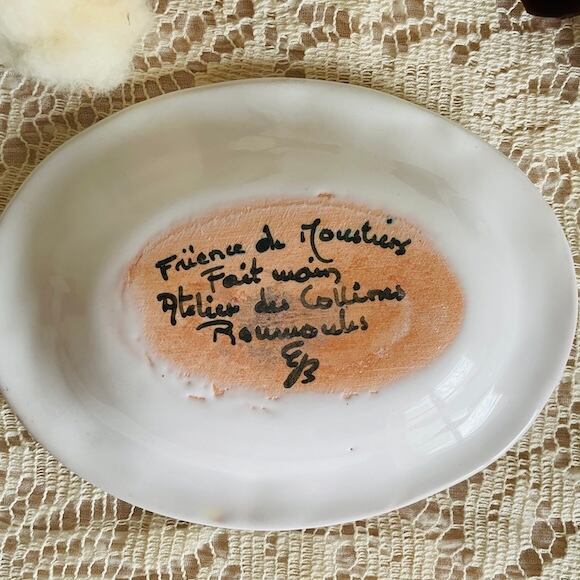 Faïence de Moustiers
Fait main
Atelier des Collines
Roumoules
EB